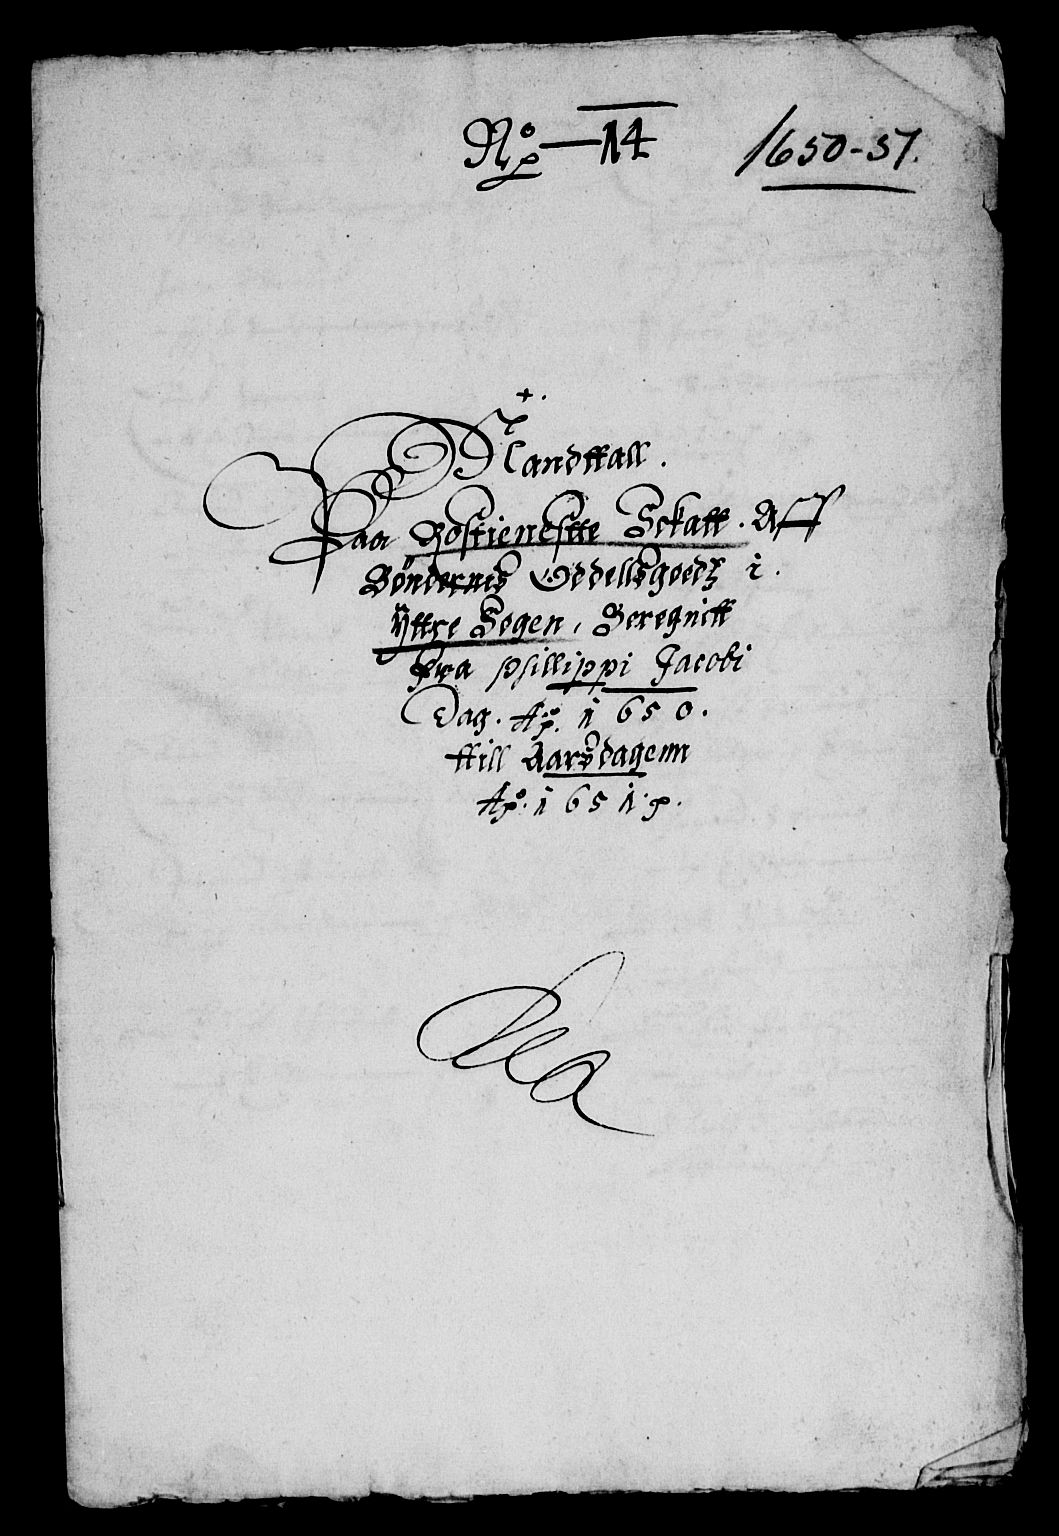 No 14
1650-51.
Mandttall.
Paa Rostienestte Sckatt. Aff
Bøndernis Oddellsgoedz i.
Yttre Sogen, Beregnitt
Fra Philippi Jacobi
Dag. Ao. 1650.
ttill Aarsdagenn
Ao. 1651. p.